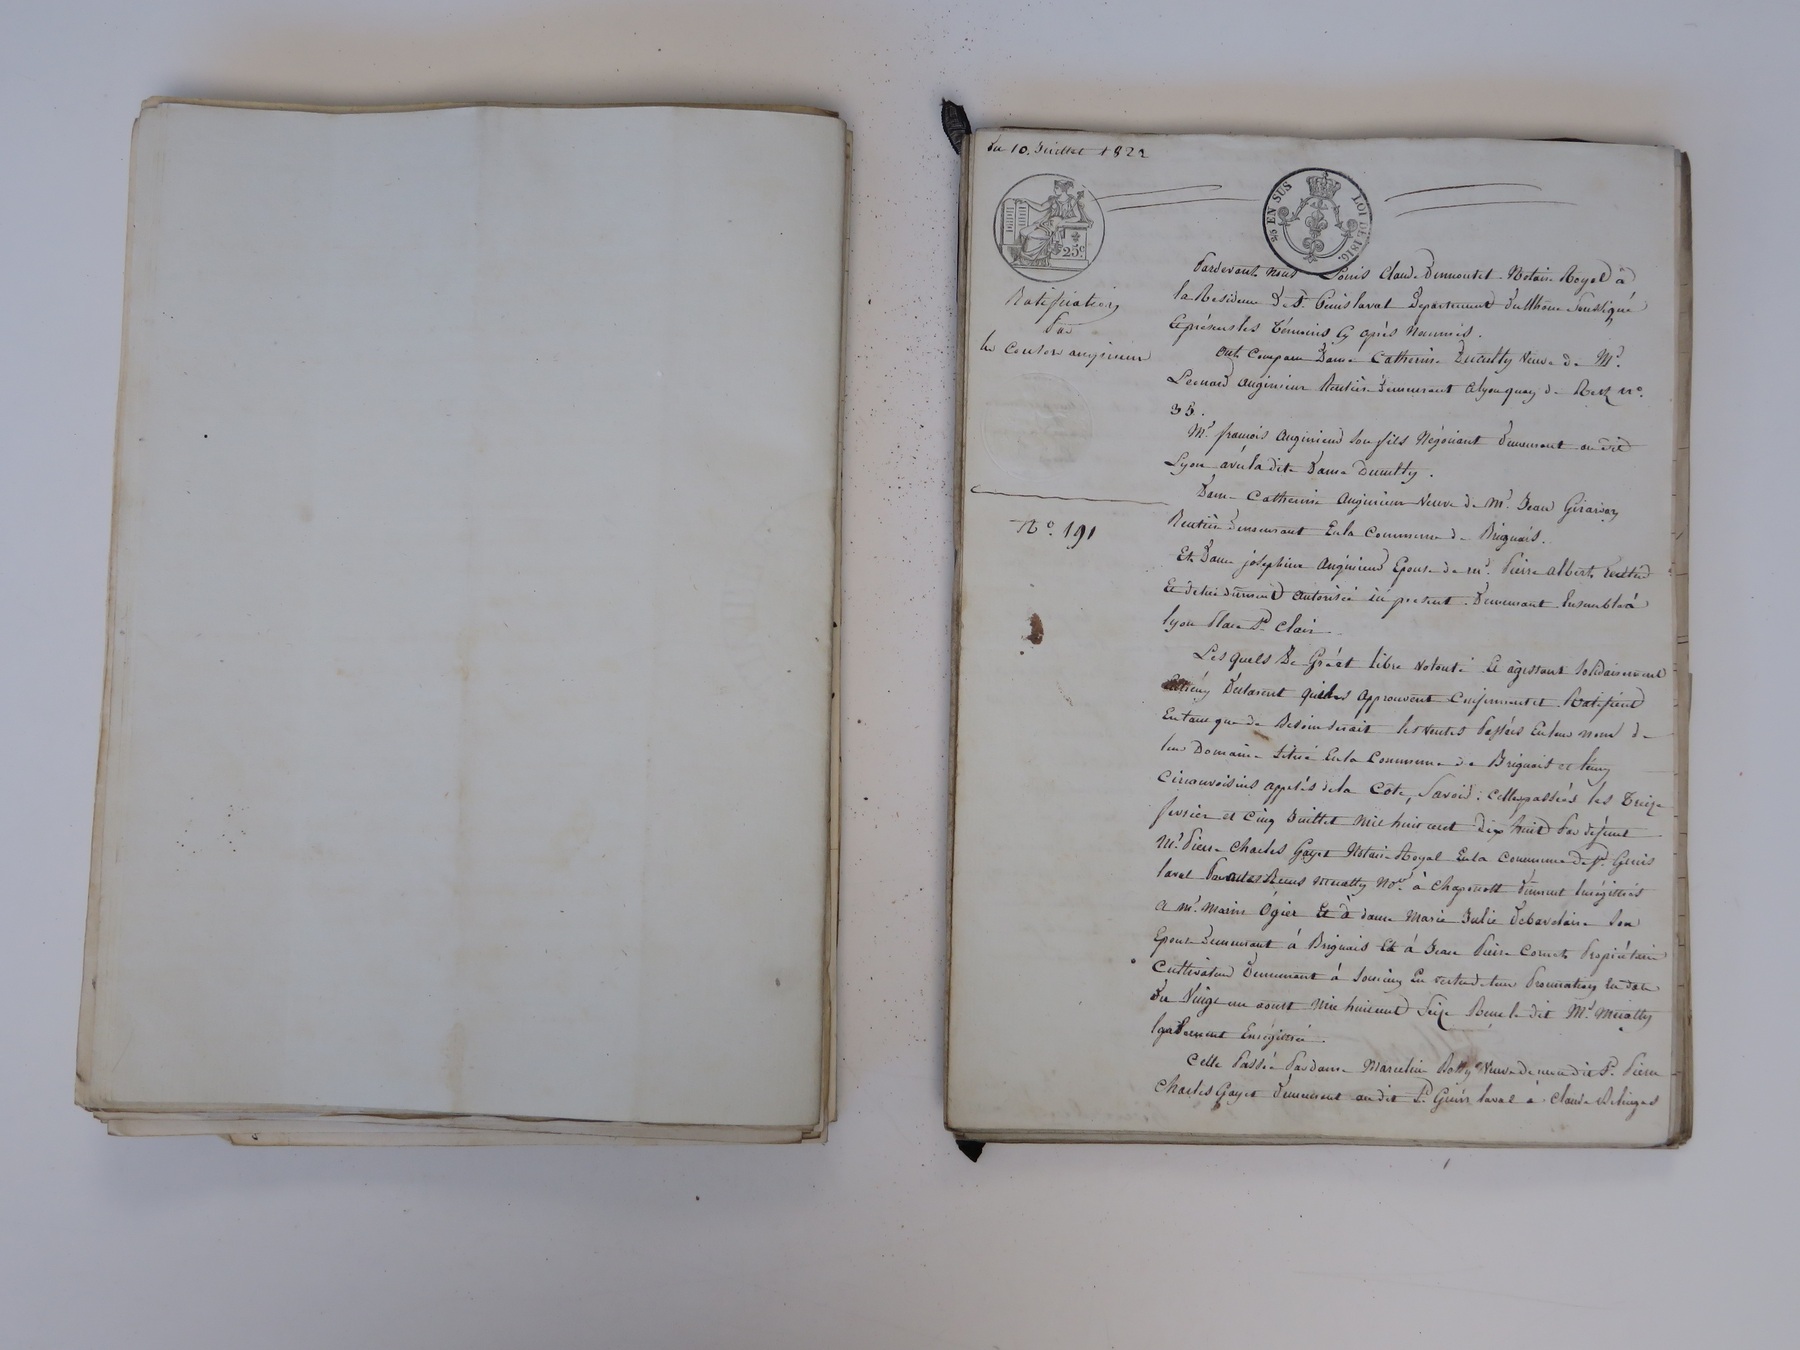 Du 10. Juillet 1822
25 EN SUS LOI DE 1816.
25c.
Ratification
Par
les Consors anginieur
N°. 191
Pardevant Nous Louis Claude Dumoutet Notaire Royal à
la Residence De St. Genis laval Departement du Rhone Soussigné
Et présens les témoins Cy après Nommés.
Ont Comparu Dame Catherine Dumilly Veuve de Mr.
Leonard anginieur Rentière demeurant a lyon quay de Retz n°.
35.
Mr. françois anginieur Son fils Négociant demeurant au dit
Lyon avec la dite Dame Dumilly.
Dame Catherine anginieur Veuve de Mr. Jean Girardon
Rentière demeurant En la Commune de Brignais.
Et Dame joséphine anginieur Epouse de mr. Pierre albert
Et de lui dument autorisée ici present. Demeurant Ensemble à
lyon Place St. Clair
Les quels De Gré et libre volonté Et agissant Solidairement
Declarent qu'ils approuvent Confirment et Ratifient
En tant que de Besoin Serait les Ventes Passées En leur nom de
leur Domaine Situé En la Commune de Brignais et lieux
Circonvoisins appelés de la Côte, Savoir : Celles passées les Treize
fevrier et Cinq Juillet Mil huit cent dix huit Par défunt
Mr. Pierre Charles Gayet Notaire Royal En la Commune de St. Genis
laval Pardevant Me. à Chaponost Dument Enregistrés
A mr. Marin Ogier Et à dame Marie Julie Debavolaire Son
Epouse Demeurant à Brignais Et à Jean Pierre Cornet Propriétaire
Cultivateur Demeurant à Soucieu En vertu de leur Procuration En date
Du Vingt un aoust Mil huit cent Seize Reçue le dit Mr.
également Enregistrée.
Celle Passée Par dame Marceline Veuve de mon dit Sr. Pierre
Charles Gayet Demeurant au dit St. Genis laval à Claude